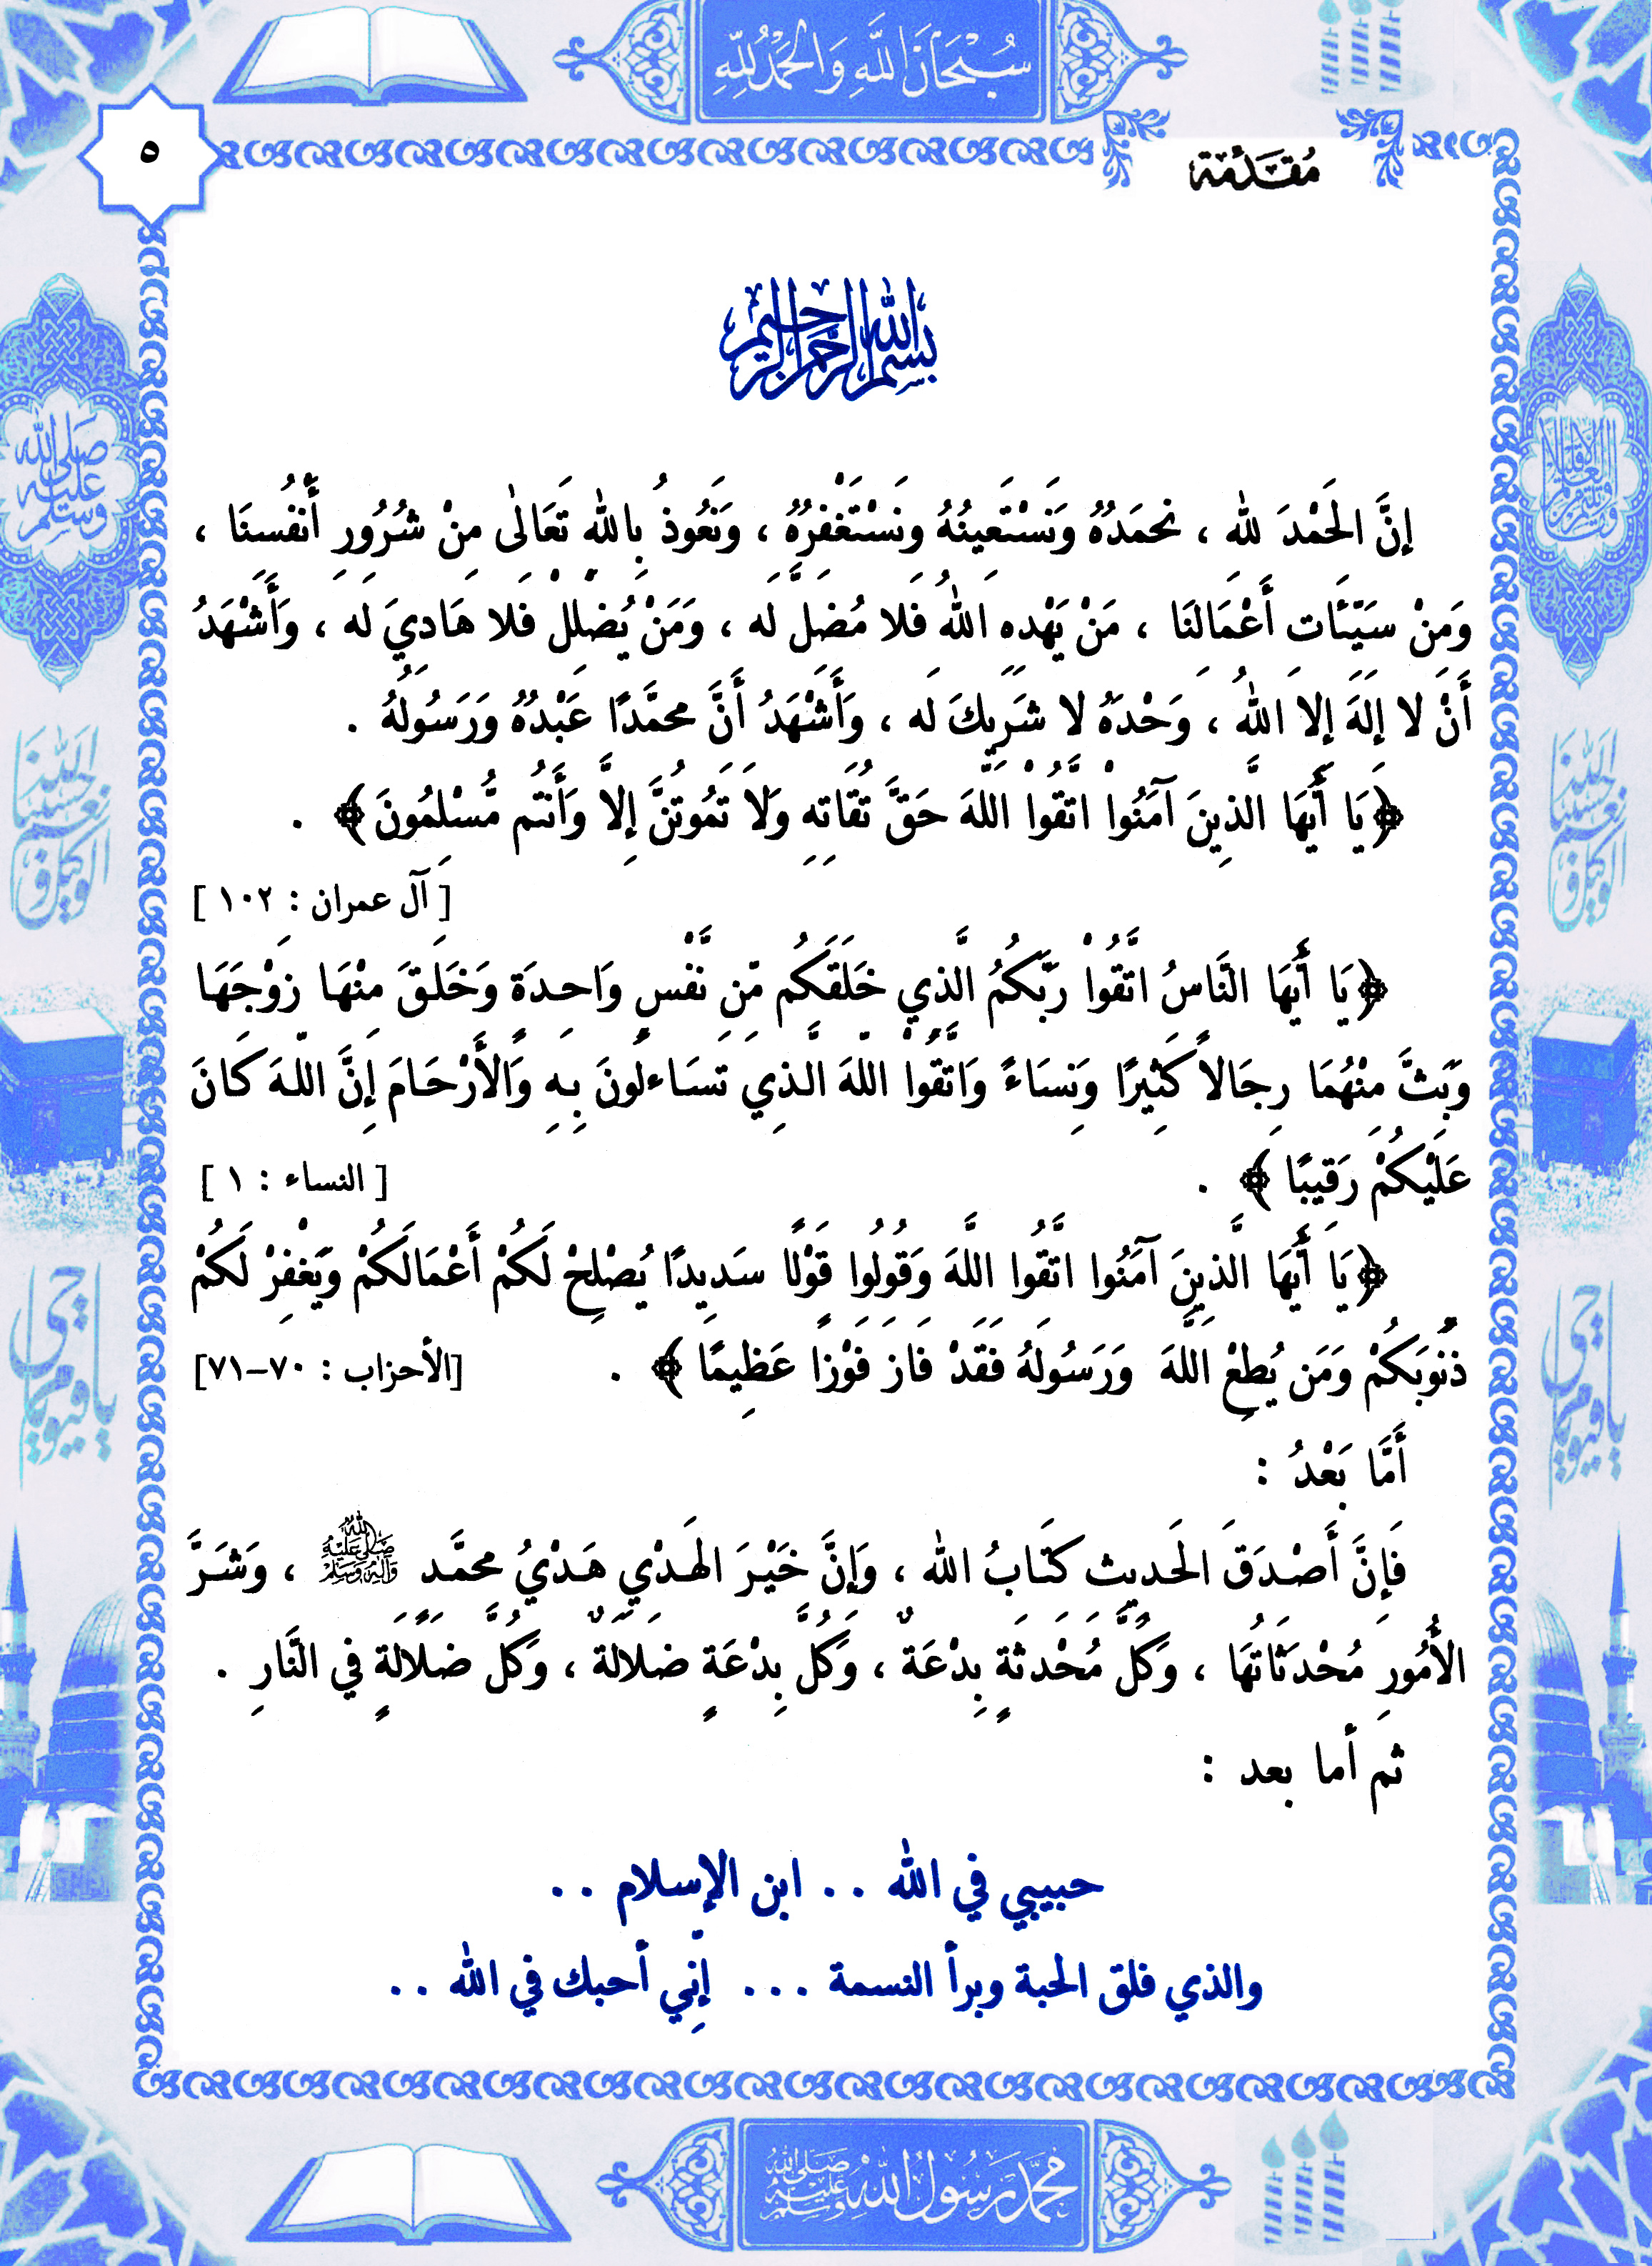 سُبْحَانَ اللَّهِ وَالْحَمْدُ لِلَّهِ
٥
مُقَدِّمَة
بسم الله الرحمن الرحيم
إِنَّ الْحَمْدَ لله ، نَحمَدُهُ وَنَسْتَعِينُهُ وَنَسْتَغْفِرُهُ ، وَنَعُوذُ بِاللهِ تَعَالَى مِنْ شُرُورِ أَنْفُسِنَا ،
وَمِنْ سَيِّئَاتِ أَعْمَالِنَا ، مَنْ يَهْدِهِ اللهُ فَلا مُضِلَّ لَه ، وَمَنْ يُضْلِلْ فَلا هَادِيَ لَه ، وَأَشْهَدُ
أَنْ لا إِلَهَ إِلا اللهُ ، وَحْدَهُ لا شَرِيكَ لَه ، وَأَشْهَدُ أَنَّ محمَّدًا عَبْدُهُ وَرَسُولُهُ .
﴿يَا أَيُّهَا الَّذِينَ آمَنُواْ اتَّقُواْ اللَّهَ حَقَّ تُقَاتِهِ وَلاَ تَمُوتُنَّ إِلاَّ وَأَنتُم مُّسْلِمُونَ﴾ .
[ آل عمران : ١٠٢ ]
﴿يَا أَيُّهَا النَّاسُ اتَّقُواْ رَبَّكُمُ الَّذِي خَلَقَكُم مِّن نَّفْسٍ وَاحِدَةٍ وَخَلَقَ مِنْهَا زَوْجَهَا
وَبَثَّ مِنْهُمَا رِجَالاً كَثِيرًا وَنِسَاءً وَاتَّقُواْ اللَّهَ الَّذِي تَسَاءلُونَ بِهِ وَالأَرْحَامَ إِنَّ اللَّهَ كَانَ
عَلَيْكُمْ رَقِيبًا ﴾ .
[ النساء : ١ ]
﴿يَا أَيُّهَا الَّذِينَ آمَنُوا اتَّقُوا اللَّهَ وَقُولُوا قَوْلًا سَدِيدًا يُصْلِحْ لَكُمْ أَعْمَالَكُمْ وَيَغْفِرْ لَكُمْ
ذُنُوبَكُمْ وَمَن يُطِعْ اللَّهَ وَرَسُولَهُ فَقَدْ فَازَ فَوْزًا عَظِيمًا ﴾ .
[الأحزاب : ٧٠-٧١]
أَمَّا بَعْدُ :
فَإِنَّ أَصْدَقَ الحَدِيثِ كِتَابُ الله ، وَإِنَّ خَيْرَ الهَدْيِ هَدْيُ محمَّدٍ صلى الله عليه وآله وسلم ، وَشَرَّ
الأُمُورِ مُحْدَثَاتُهَا ، وَكُلَّ مُحْدَثَةٍ بِدْعَةٌ ، وَكُلَّ بِدْعَةٍ ضَلاَلَةٌ ، وَكُلَّ ضَلاَلَةٍ فِي النَّارِ .
ثم أما بعد :
حبيبي في الله . . ابن الإسلام . .
والذي فلق الحبة وبرأ النسمة . . . إنِّي أحبك في الله . .
صلى الله عليه وسلم
حسبنا الله ونعم الوكيل
حسبنا الله ونعم الوكيل
يا حي يا قيوم
يا حي يا قيوم
محمد رسول الله صلى الله عليه وسلم